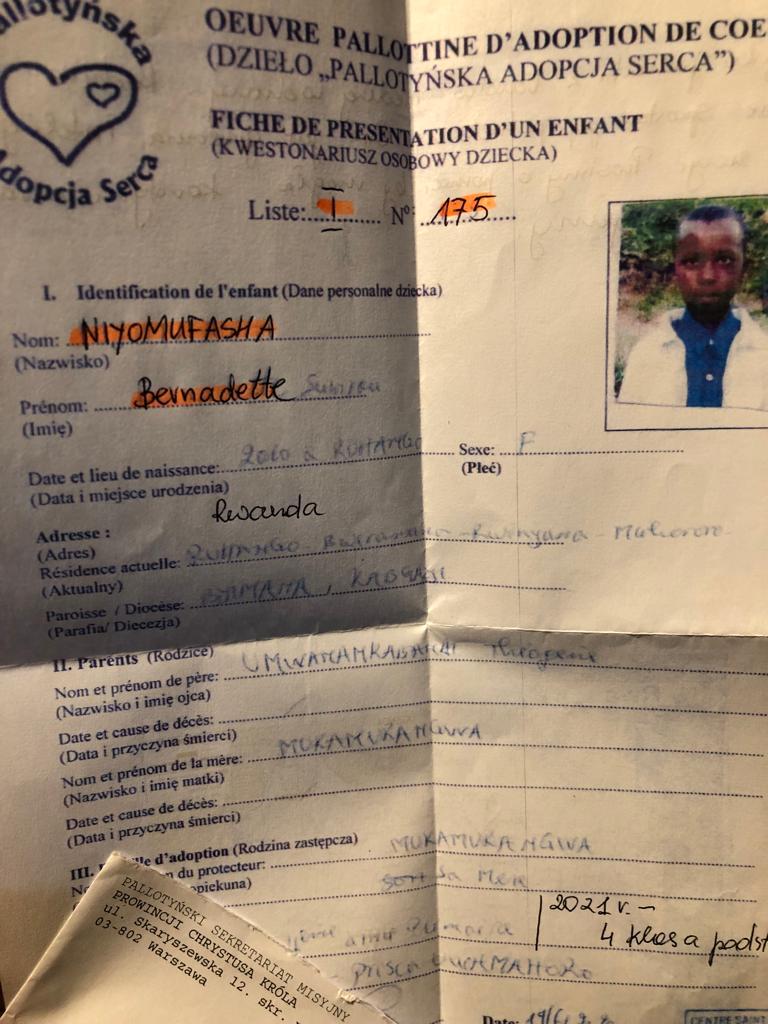 Pallotyńska
Adopcja Serca
OEUVRE PALLOTTINE D'ADOPTION DE COE
(DZIEŁO „PALLOTYŃSKA ADOPCJA SERCA")
FICHE DE PRESENTATION D'UN ENFANT
(KWESTONARIUSZ OSOBOWY DZIECKA)
Liste:....I........ N°....175......
I. Identification de l'enfant (Dane personalne dziecka)
Nom: NIYOMUFASHA
(Nazwisko)
Prénom: Bernadette
(Imię)
Date et lieu de naissance: 2010 à RUHANGO Sexe: F
(Data i miejsce urodzenia) (Płeć)
Rwanda
Adresse :
(Adres)
Résidence actuelle: RUHANGO
(Aktualny)
Paroisse / Diocèse: KABGAYI
(Parafia/ Diecezja)
II. Parents (Rodzice)
Nom et prénom de père: Théogène
(Nazwisko i imię ojca)
Date et cause de décès:
(Data i przyczyna śmierci)
Nom et prénom de la mère: MUKAMURANGWA
(Nazwisko i imię matki)
Date et cause de décès:
(Data i przyczyna śmierci)
III. d'adoption (Rodzina zastępcza)
du protecteur: MUKAMURANGWA
opiekuna)
2021 r. –
4 klasa podst
Date:
CENTRE SAINT
PALLOTYŃSKI SEKRETARIAT MISYJNY
PROWINCJI CHRYSTUSA KRÓLA
ul. Skaryszewska 12. skr.
03-802 Warszawa